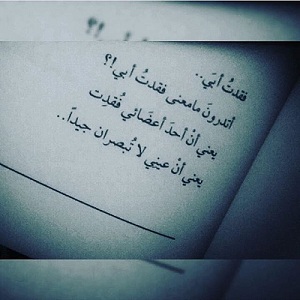 فقدتُ أبَي..
أتدرونَ مامعنى فقدتُ أبي!؟
يعني أنْ أحدَ أعضَائي فُقدت
يعني أنْ عيني لا تُبصران جيداً..